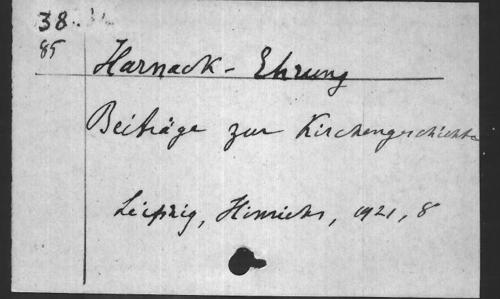 38.
85
Harnack - Ehrung
Beiträge zur Kirchengeschichte
Leipzig, Hinrichs, 1921, 8